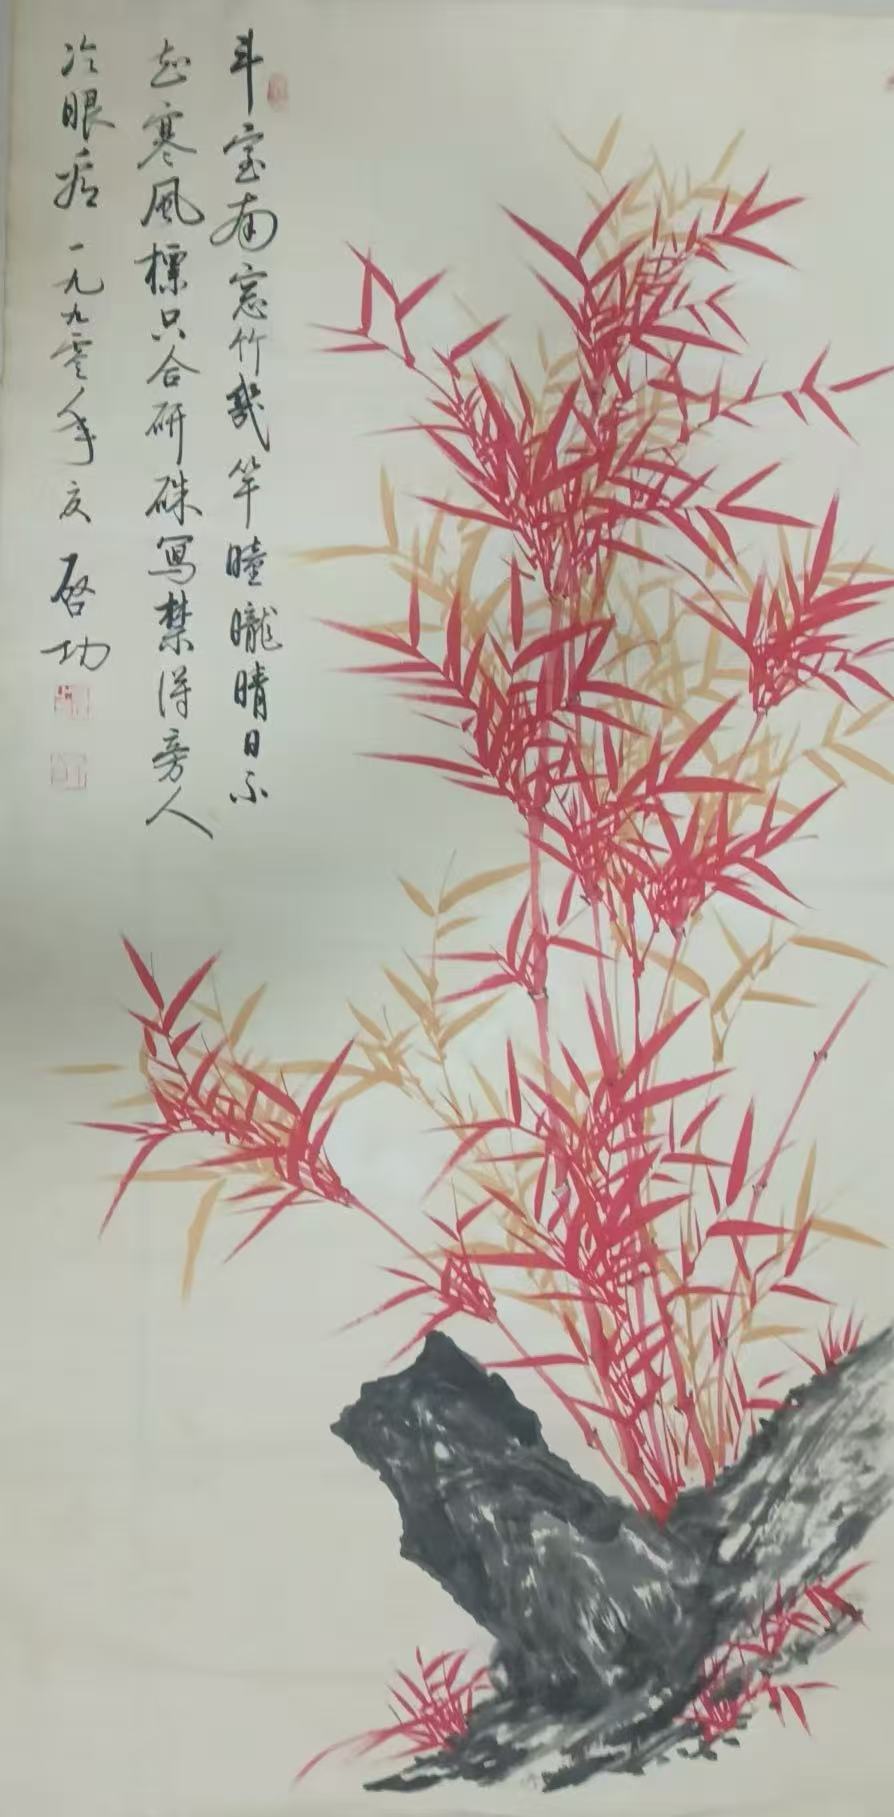 斗室南窓竹幾竿曈曨晴日不
知寒風標只合研硃寫禁得旁人
冷眼看一九九零年夏啓功